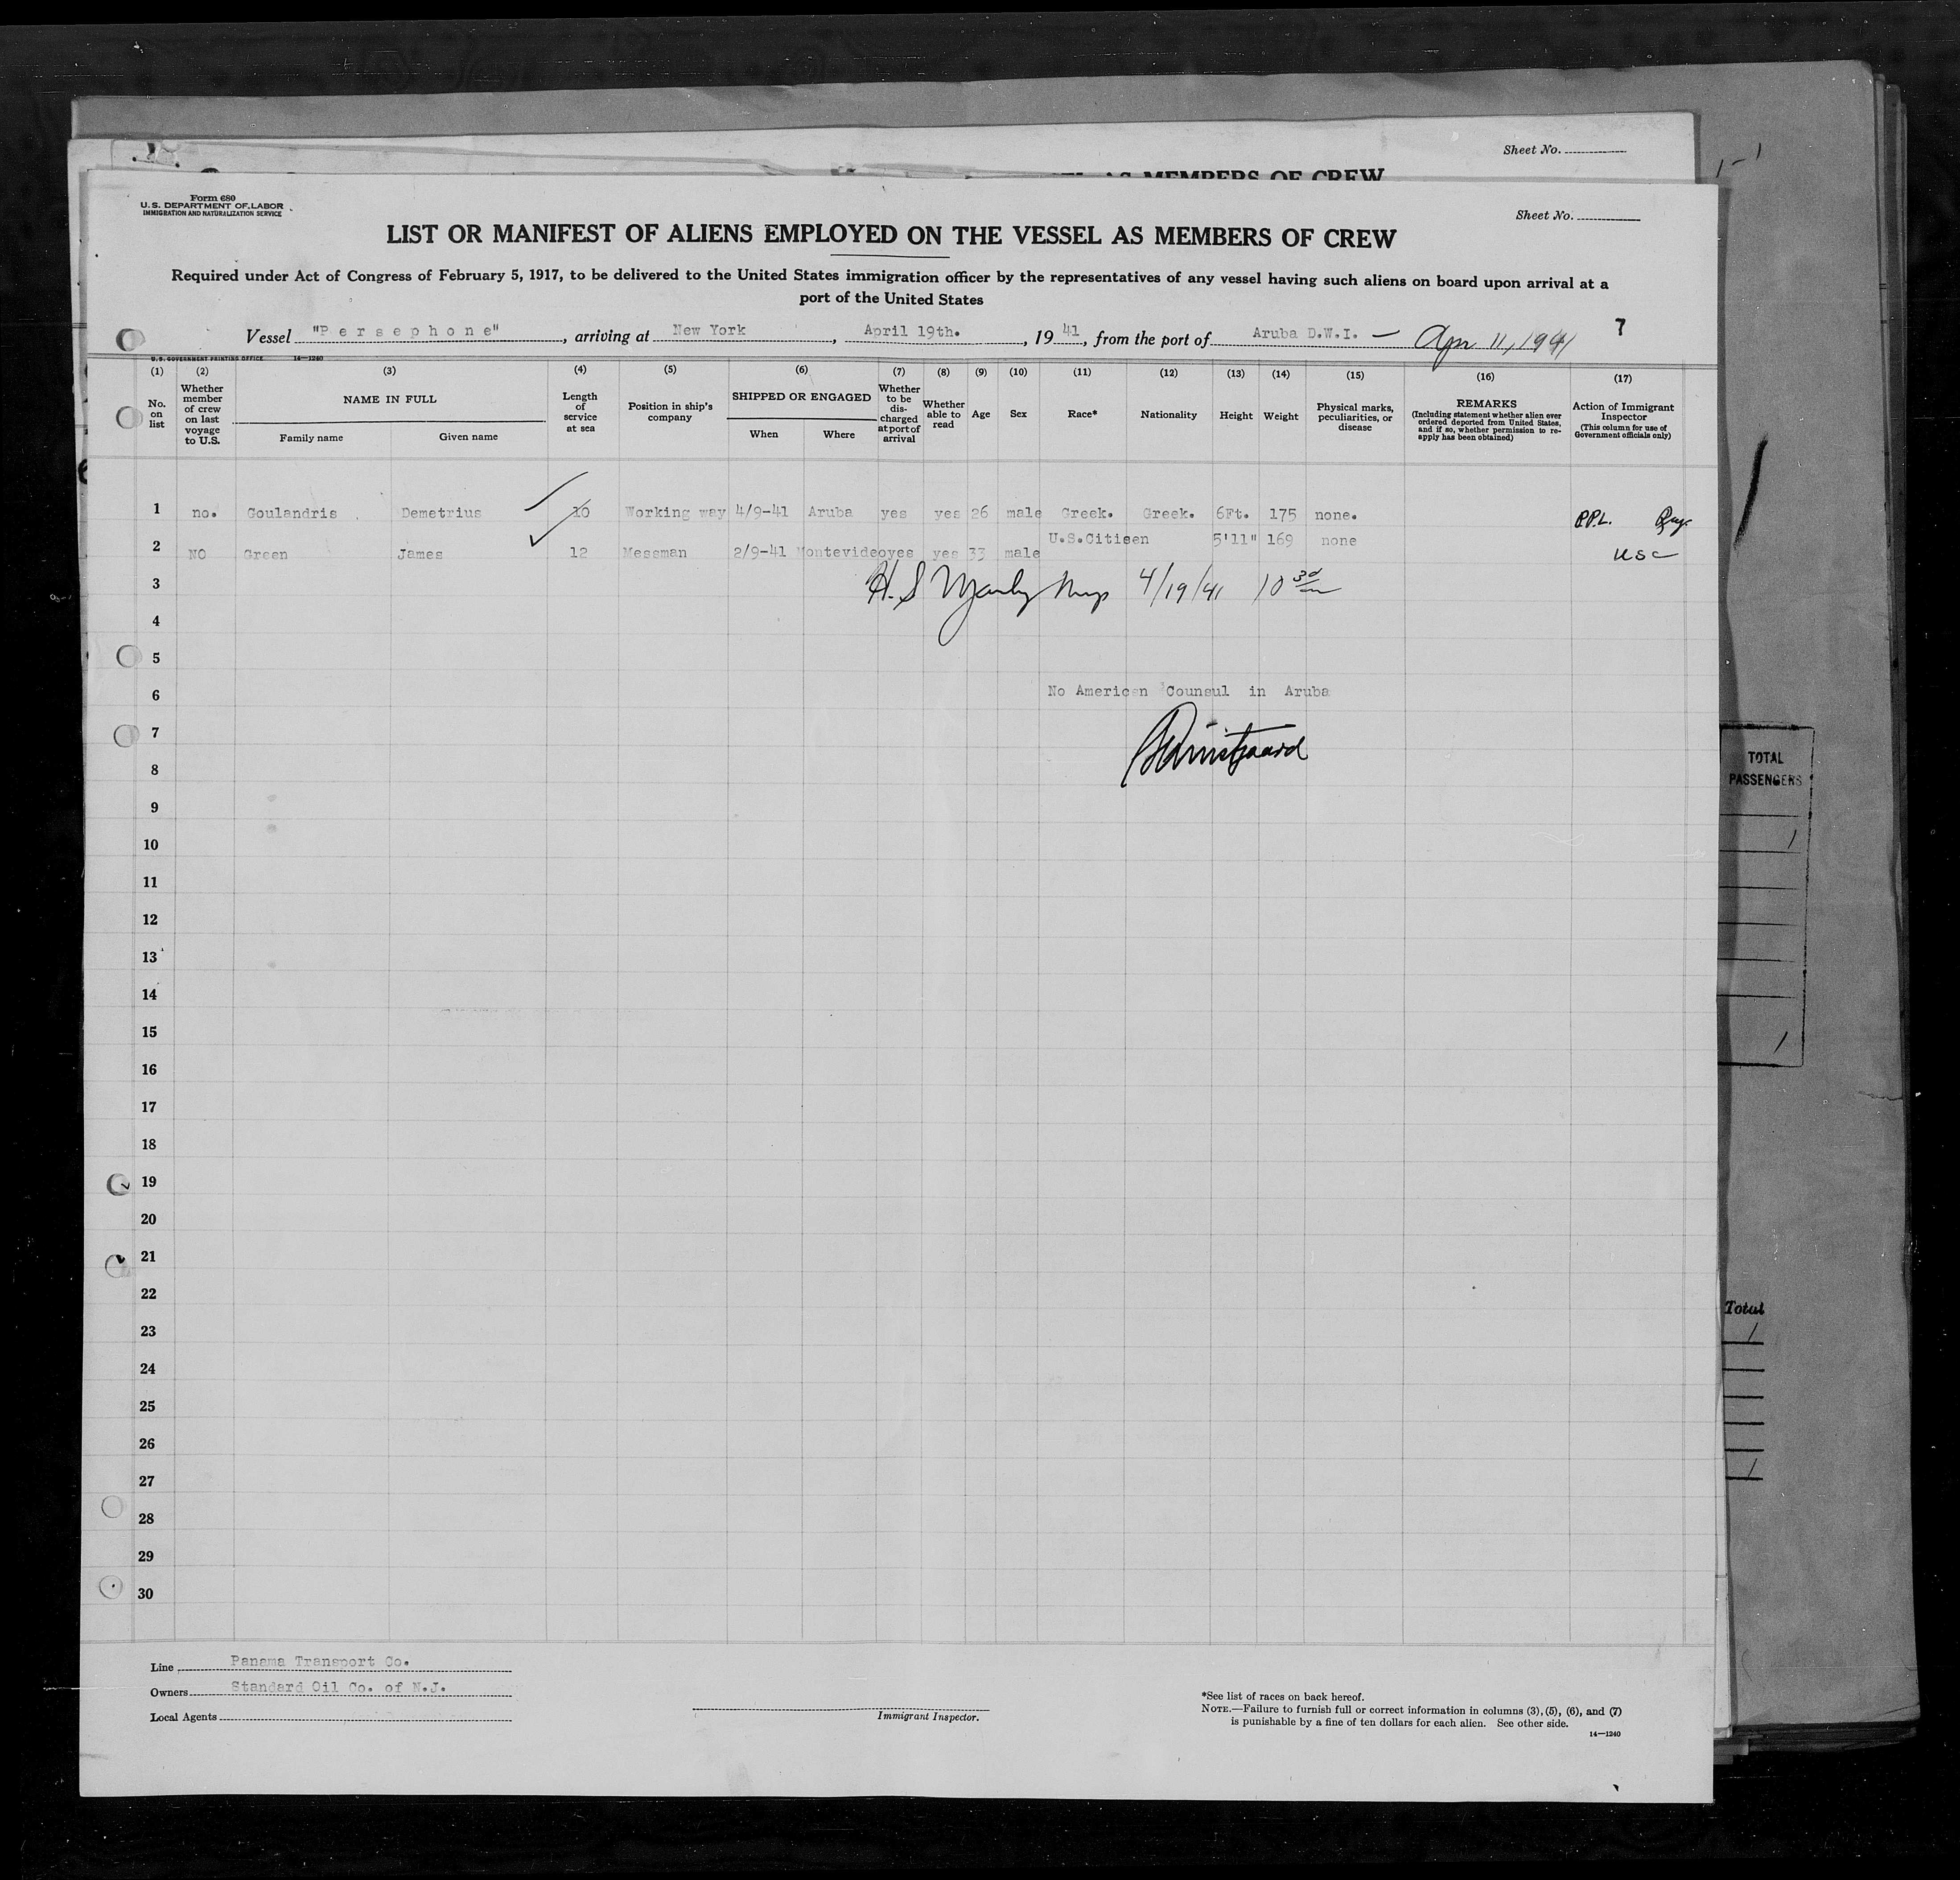 Sheet No.
AS MEMBERS OF CREW
Form 680
U.S. DEPARTMENT OF LABOR
IMMIGRATION AND NATURALIZATION SERVICE
Sheet No.
LIST OR MANIFEST OF ALIENS EMPLOYED ON THE VESSEL AS MEMBERS OF CREW
Required under Act of Congress of February 5, 1917, to be delivered to the United States immigration officer by the representatives of any vessel having such aliens on board upon arrival at a
port of the United States
7
Vessel "P e r s e p h o n e", arriving at New York, April 19th., 19 41, from the port of Aruba D.W.I. — Apr 11, 1941
U.S. GOVERNMENT PRINTING OFFICE 14—1240
(1) (2) (3) (4) (5) (6) (7) (8) (9) (10) (11) (12) (13) (14) (15) (16) (17)
No. on list
Whether member of crew on last voyage to U.S.
NAME IN FULL
Family name Given name
Length of service at sea
Position in ship's company
SHIPPED OR ENGAGED
When Where
Whether to be discharged at port of arrival
Whether able to read
Age
Sex
Race*
Nationality
Height
Weight
Physical marks, peculiarities, or disease
REMARKS
(Including statement whether alien ever ordered deported from United States, and if so, whether permission to re-apply has been obtained)
Action of Immigrant Inspector
(This column for use of Government officials only)
1 no. Goulandris Demetrius 10 Working way 4/9-41 Aruba yes yes 26 male Greek. Greek. 6Ft. 175 none. P.P.L.
2 NO Green James 12 Messman 2/9-41 Montevideo yes yes 33 male U.S.Citisen 5'11" 169 none USC
3 H. S 4/19/41 10 30
4
5
6 No American Counsul in Aruba
7
8
9
10
11
12
13
14
15
16
17
18
19
20
21
22
23
24
25
26
27
28
29
30
TOTAL
PASSENGERS
1
1
Total
1
1
Line Panama Transport Co.
Owners Standard Oil Co. of N.J.
Local Agents
Immigrant Inspector.
*See list of races on back hereof.
NOTE.—Failure to furnish full or correct information in columns (3), (5), (6), and (7)
is punishable by a fine of ten dollars for each alien. See other side.
14—1240